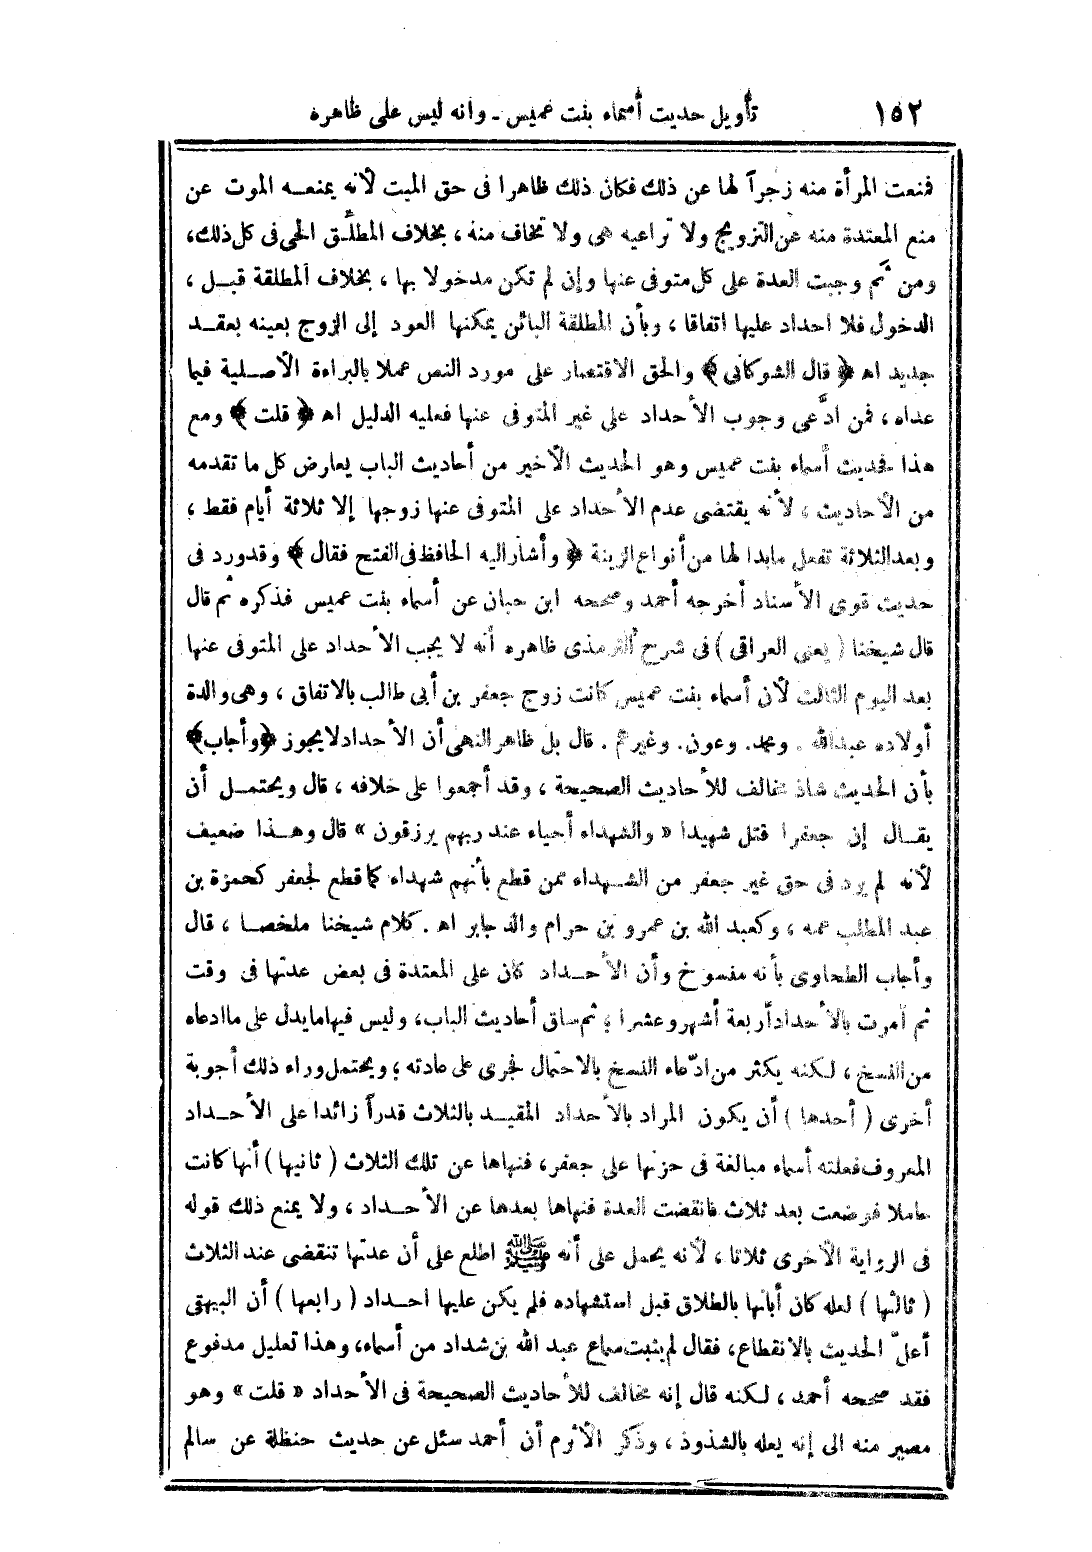 ١٥٢ تأويل حديث أسماء بنت عميس ـ وانه ليس على ظاهره
فمنعت المرأة منه زجراً لها عن ذلك فكان ذلك ظاهرا فى حق الميت لأنه يمنعه الموت عن
منع المعتدة منه عن التزويج ولا تراعيه هى ولا تخاف منه ، بخلاف المطلَّق الحى فى كل ذلك،
ومن ثَم وجبت العدة على كل متوفى عنها وإن لم تكن مدخولا بها ، بخلاف المطلقة قبل ،
الدخول فلا احداد عليها اتفاقا ، وبأن المطلقة البائن يمكنها العود إلى الزوج بعينه بعقد
جديد اه ﴿ قال الشوكانى ﴾ والحق الاقتصار على مورد النص عملا بالبراءة الأصلية فيما
عداه ، فمن ادَّعى وجوب الأحداد على غير المتوفى عنها فعليه الدليل اه ﴿ قلت ﴾ ومع
هذا فحديث أسماء بنت عميس وهو الحديث الأخير من أحاديث الباب يعارض كل ما تقدمه
من الأحاديث ، لأنه يقتضى عدم الأحداد على المتوفى عنها زوجها إلا ثلاثة أيام فقط ،
وبعد الثلاثة تفعل مابدا لها من أنواع الزينة ﴿ وأشار اليه الحافظ فى الفتح فقال ﴾ وقدورد فى
حديث قوى الأسناد أخرجه أحمد وصححه ابن حبان عن أسماء بنت عميس فذكره ثم قال
قال شيخنا ( يعنى العراقى ) فى شرح الترمذى ظاهره أنه لا يجب الأحداد على المتوفى عنها
بعد اليوم الثالث لأن أسماء بنت عميس كانت زوج جعفر بن أبى طالب بالاتفاق ، وهى والدة
أولاده عبدالله . ومحمد. وعون. وغيرهم . قال بل ظاهر النهى أن الأحداد لا يجوز ﴿وأجاب﴾
بأن الحديث شاذ مخالف للأحاديث الصحيحة ، وقد أجمعوا على خلافه ، قال ويحتمل أن
يقال إن جعفرا قتل شهيدا « والشهداء أحياء عند ربهم يرزقون » قال وهذا ضعيف
لأنه لم يرد فى حق غير جعفر من الشهداء ممن قطع بأنهم شهداء كما قطع لجعفر كحمزة بن
عبد المطلب عمه ، وكعبد الله بن عمرو بن حرام والد جابر اه . كلام شيخنا ملخصا ، قال
وأجاب الطحاوى بأنه مفسوخ وأن الأحداد كان على المعتدة فى بعض عدتها فى وقت
ثم أمرت بالأحداد أربعة أشهر وعشرا ؛ ثم ساق أحاديث الباب، وليس فيها مايدل على ماادعاه
من النسخ ، لكنه يكثر من ادّعاء النسخ بالاحتمال فجرى على عادته ؛ ويحتمل وراء ذلك أجوبة
أخرى ( أحدها ) أن يكون المراد بالأحداد المقيد بالثلاث قدراً زائدا على الأحداد
المعروف فعلته أسماء مبالغة فى حزنها على جعفر، فنهاها عن تلك الثلاث ( ثانيها ) أنها كانت
حاملا فوضعت بعد ثلاث فانقضت العدة فنهاها بعدها عن الأحداد ، ولا يمنع ذلك قوله
فى الرواية الأخرى ثلاثا ، لأنه يحمل على أنه ﷺ اطلع على أن عدتها تنقضى عند الثلاث
( ثالثها ) لعله كان أبانها بالطلاق قبل استشهاده فلم يكن عليها احداد ( رابعها ) أن البيهقى
أعلّ الحديث بالانقطاع، فقال لم يثبت سماع عبد الله بن شداد من أسماء، وهذا تعليل مدفوع
فقد صححه أحمد ، لكنه قال إنه مخالف للأحاديث الصحيحة فى الأحداد « قلت » وهو
مصير منه الى إنه يعله بالشذوذ ، وذكر الأثرم أن أحمد سئل عن حديث حنظلة عن سالم